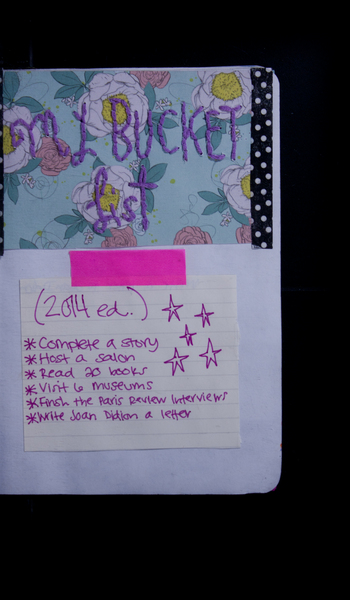 My BUCKET
list
(2014 ed.)
* Complete a story
* Host a salon
* Read 20 books
* Visit 6 museums
* Finsh the Paris Review Interviews
* Write Joan Didion a letter